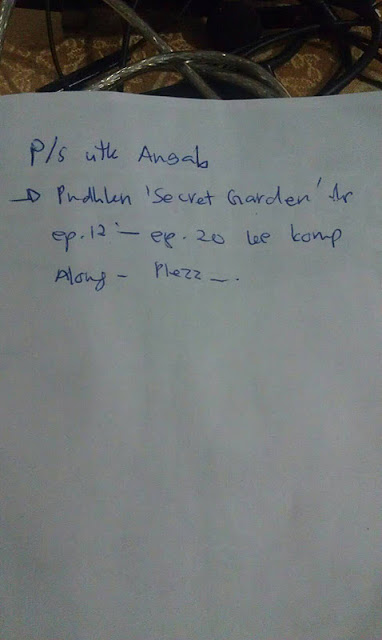 P/s utk Angah
→ Pndhkn 'Secret Garden' dr
ep.12 – ep.20 ke komp
Along – Plezz –.